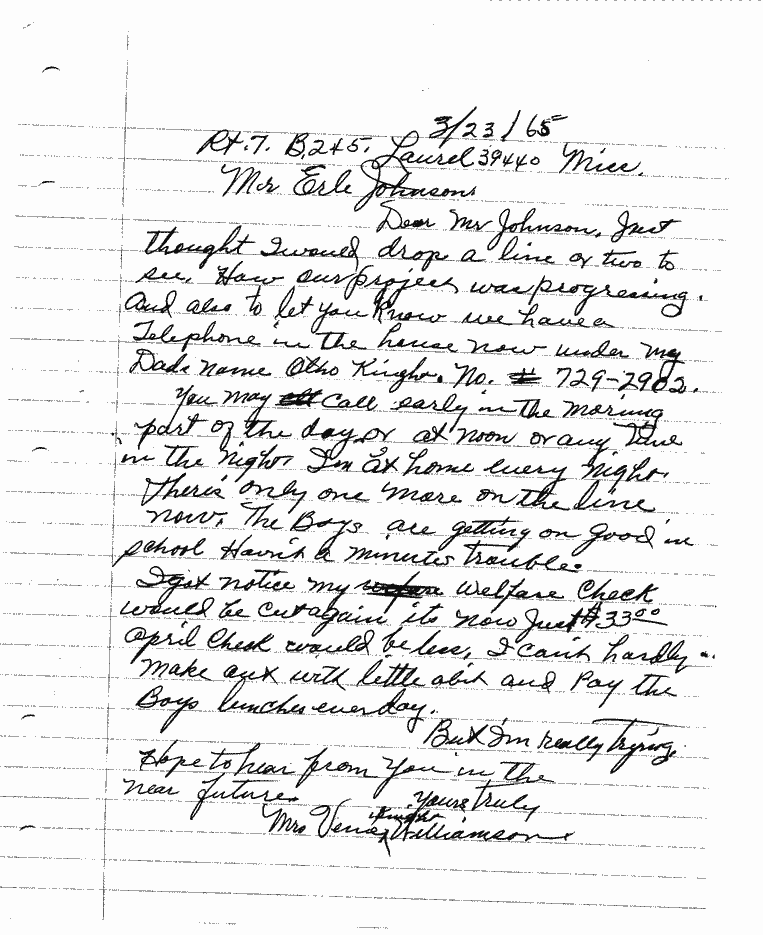 3/23/65
Rt.7. B.245. Laurel 39440 Miss.
Mr Erle Johnson.
Dear Mr Johnson, Just
thought I would drop a line or two to
see. How our project was progressing.
And also to let you Know we have a
Telephone in the house now under my
Dads name Otho Knight. No. # 729-2902.
You may call early in the morning
part of the day, or at noon or any time
in the night. I'm at home every night.
There's only one more on the line
now. The Boys are getting on good in
school Havn't a minutes trouble.
I got notice my Welfare Check
would be cut again its now Just $33.00
April Check would be less, I can't hardly
make out with little a bit and Pay the
Boys lunches everday.
But I'm really Trying.
Hope to hear from You in the
near future.
Yours Truly
Knight
Mrs Williamson